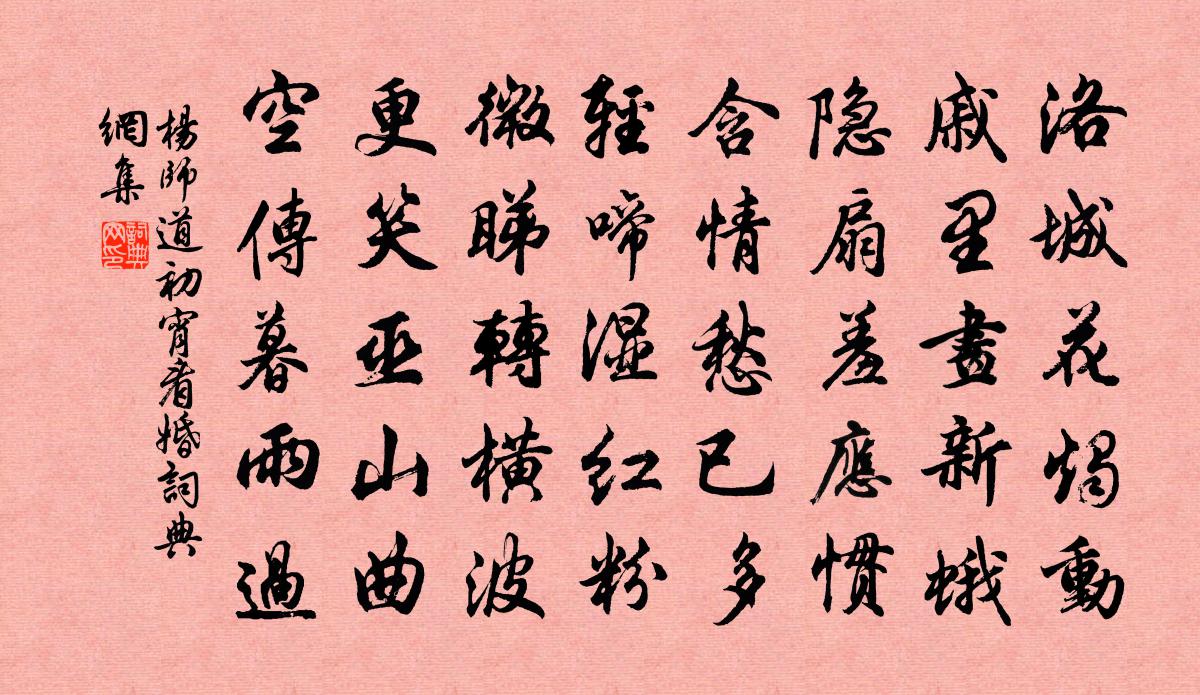 洛城花烛動
戚里畫新蛾
隐扇羞應慣
含情愁已多
輕啼濕红粉
微睇轉橫波
更笑巫山曲
空傳暮雨過
楊師道初宵看婚詞典
網集
詞典
网印